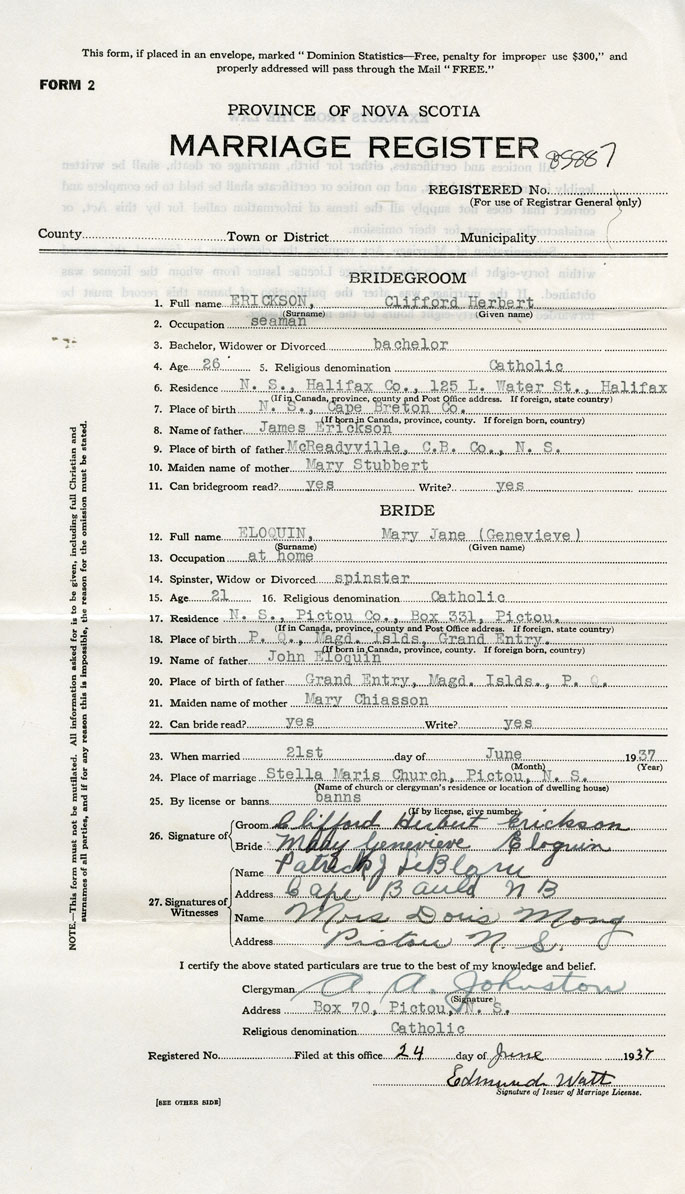 This form, if placed in an envelope, marked "Dominion Statistics—Free, penalty for improper use $300," and
properly addressed will pass through the Mail "FREE."
FORM 2
PROVINCE OF NOVA SCOTIA
MARRIAGE REGISTER 85887
REGISTERED No.
(For use of Registrar General only)
County Town or District Municipality
BRIDEGROOM
1. Full name ERICKSON, Clifford Herbert
(Surname) (Given name)
2. Occupation seaman
3. Bachelor, Widower or Divorced bachelor
4. Age 26 5. Religious denomination Catholic
6. Residence N. S., Halifax Co., 125 L. Water St., Halifax
(If in Canada, province, county and Post Office address. If foreign, state country)
7. Place of birth N. S., Cape Breton Co.
(If born in Canada, province, county. If foreign born, country)
8. Name of father James Erickson
9. Place of birth of father McReadyville, C.B. Co., N. S.
10. Maiden name of mother Mary Stubbert
11. Can bridegroom read? yes Write? yes
BRIDE
12. Full name ELOQUIN, Mary Jane (Genevieve)
(Surname) (Given name)
13. Occupation at home
14. Spinster, Widow or Divorced spinster
15. Age 21 16. Religious denomination Catholic
17. Residence N. S., Pictou Co., Box 331, Pictou.
(If in Canada, province, county and Post Office address. If foreign, state country)
18. Place of birth P. Q., Magd. Islds, Grand Entry.
(If born in Canada, province, county. If foreign born, country)
19. Name of father John Eloquin
20. Place of birth of father Grand Entry, Magd. Islds., P. Q.
21. Maiden name of mother Mary Chiasson
22. Can bride read? yes Write? yes
23. When married 21st day of June 1937
(Month) (Year)
24. Place of marriage Stella Maris Church, Pictou, N. S.
(Name of church or clergyman's residence or location of dwelling house)
25. By license or banns banns
(If by license, give number)
26. Signature of
Groom Clifford Herbert Erickson
Bride Mary Genevieve Eloquin
27. Signatures of Witnesses
Name Patrick J LeBlanc
Address Cape Bauld N B
Name Mrs Doris Mong
Address Pictou N S.
I certify the above stated particulars are true to the best of my knowledge and belief.
Clergyman A. A. Johnston
(Signature)
Address Box 70, Pictou, N. S.
Religious denomination Catholic
Registered No. Filed at this office 24 day of June 1937
Edmund Watt
Signature of Issuer of Marriage License.
[SEE OTHER SIDE]
NOTE.—This form must not be mutilated. All information asked for is to be given, including full Christian and
surnames of all parties, and if for any reason this is impossible, the reason for the omission must be stated.